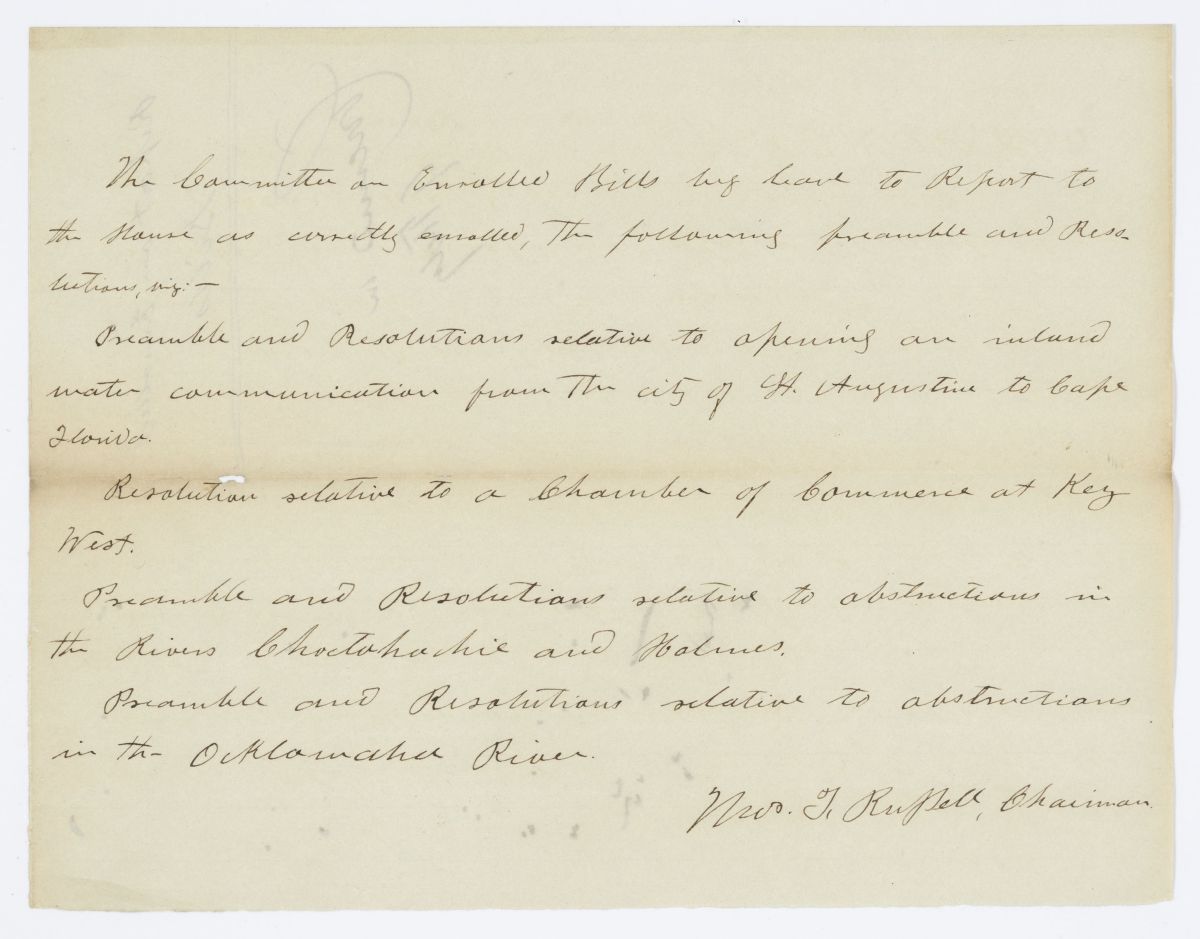 The Committee on Enrolled Bills beg leave to Report to
the House as correctly enrolled, The following preamble and Reso-
lutions, viz:—
Preamble and Resolutions relative to opening an inland
water communication from The city of St. Augustine to Cape
Florida.
Resolution relative to a Chamber of Commerce at Key
West.
Preamble and Resolutions relative to obstructions in
the Rivers Choctohachie and Holmes.
Preamble and Resolutions relative to obstructions
in the Ocklawaha River.
T. Russell, Chairman.